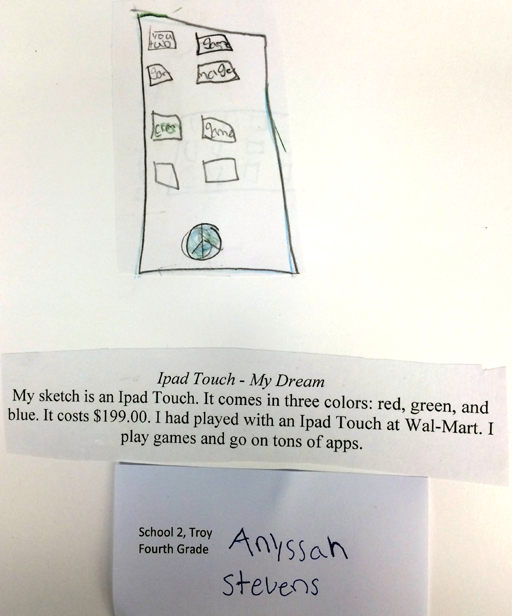 you
Game
Game
Ipad Touch - My Dream
My sketch is an Ipad Touch. It comes in three colors: red, green, and
blue. It costs $199.00. I had played with an Ipad Touch at Wal-Mart. I
play games and go on tons of apps.
School 2, Troy
Fourth Grade
Anyssah
Stevens